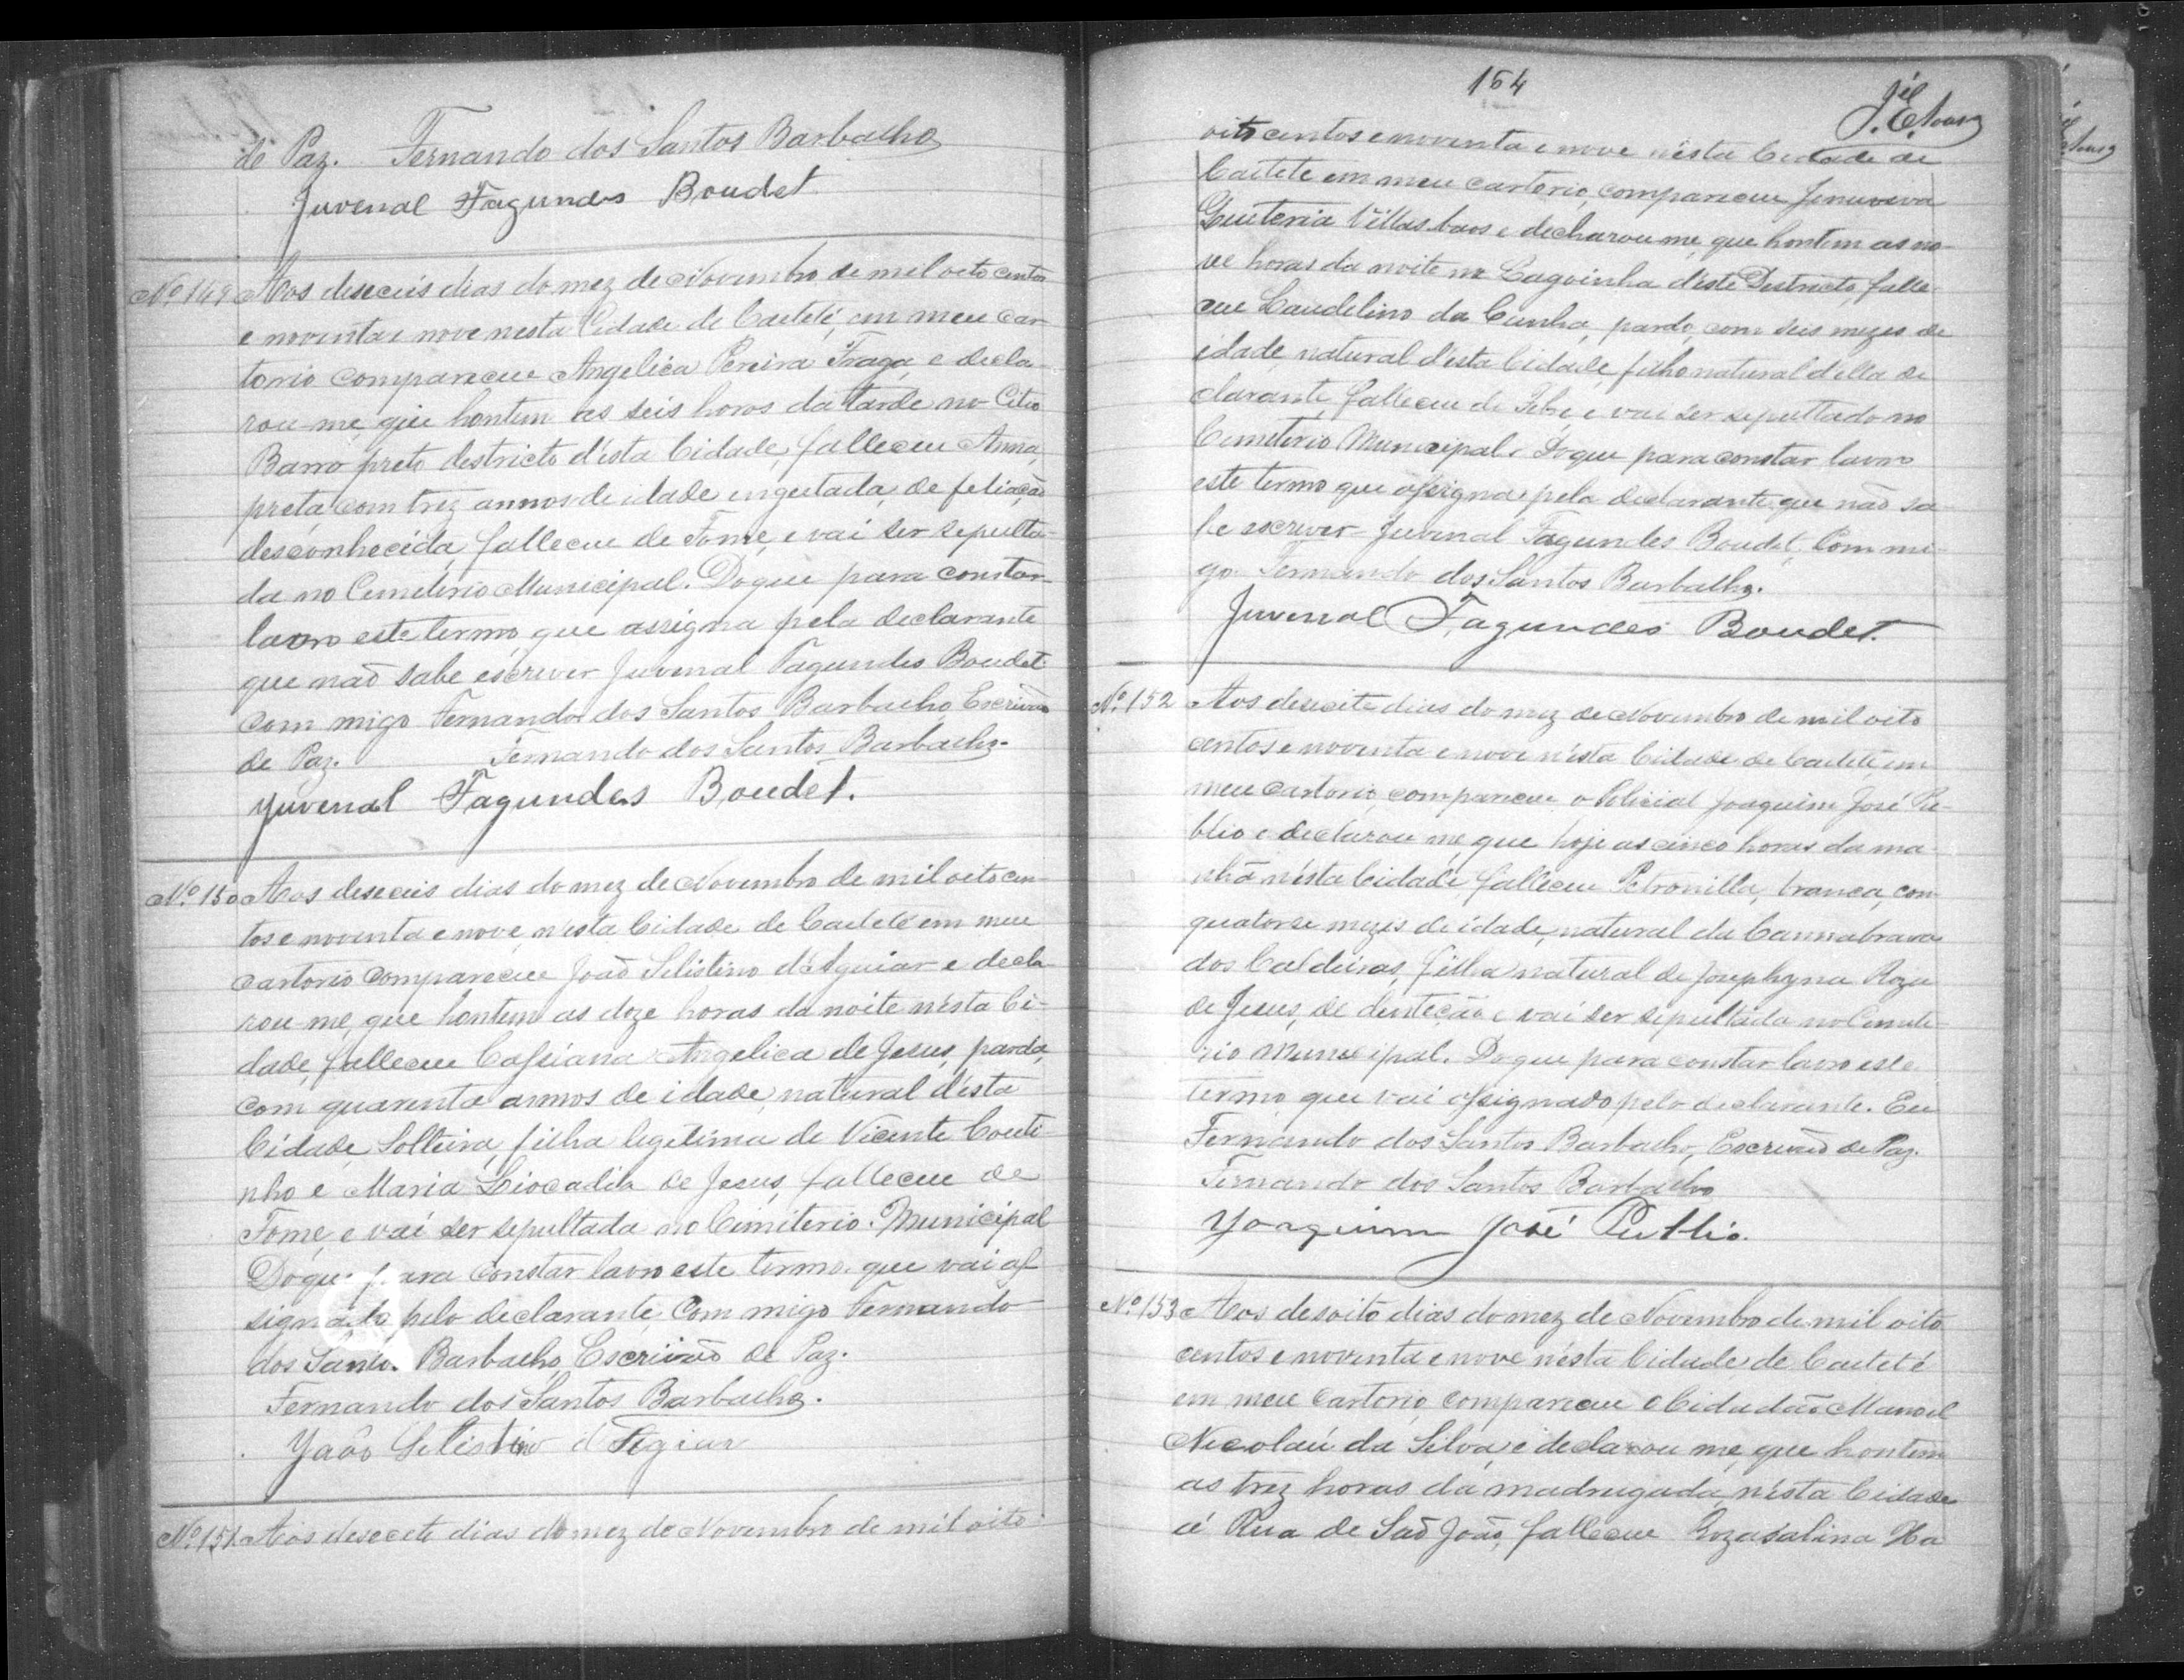 de Paz. Fernando dos Santos Barbalho
Juvenal Fagundes Boudet
Nº 149 Aos deseceis dias do mez de Novembro de mil oito centos
e noventa e nove nesta Cidade de Caeteté, em meu Car-
torio compareceu Angelica Pereira Fraga, e decla-
rou-me, que hontem as seis horas da tarde no Citio
Barro preto destricto d'esta Cidade, falleceu Anna,
preta, com trez annos de idade, engeitada, de feliação
desconhecida, falleceu de Fome, e vai ser sepulta-
da no Cemeterio Municipal. Do que para constar
lavro este termo, que assigna pela declarante
que naõ sabe escrever Juvenal Fagundes Boudet
com migo Fernando dos Santos Barbalho, Escrivaõ
de Paz. Fernando dos Santos Barbalho.
Juvenal Fagundes Boudet.
Nº 150 Aos deseceis dias do mez de Novembro de mil oito cen-
tos e noventa e nove, n'esta Cidade de Caeteté em meu
cartorio compareceu Joaõ Selistino d'Aguiar e decla-
rou me, que hontem as doze horas da noite n'esta Ci-
dade, falleceu Cassiana Angelica de Jesus, parda,
com quarenta annos de idade, natural d'esta
Cidade, Solteira, filha legetima de Vicente Couti-
nho e Maria Liocadia de Jesus, falleceu de
Fome, e vai ser sepultada no Cimiterio Municipal
Do que para constar lavro este termo que vai as-
signado pelo declarante, Com migo Fernando
dos Santos Barbalho, Escrivaõ de Paz.
Fernando dos Santos Barbalho.
Joaõ Selistino d Agiar
Nº 151 Aos desecete dias do mez de Novembro de mil oito
164
oito centos e noventa e nove n'esta Cidade de
Caeteté em meu cartorio, compareceu Jenuveva
Villasboas e declarou me, que hontem as no-
ve horas da noite na Lagoinha d'este Destricto, falle-
ceu Laudelino da Cunha, pardo, com seis mezes de
idade, natural d'esta Cidade, filho natural d'ella de-
clarante, falleceu de Febre, e vai ser sepultado no
Cemeterio Municipal. Do que para constar lavro
este termo que assigna pela declarante que naõ sa-
be escrever Juvenal Fagundes Boudet, Com mi-
go Fernando dos Santos Barbalho.
Juvenal Fagundes Boudet.
Nº 152 Aos desecete dias do mez de Novembro de mil oito
centos e noventa e nove n'esta Cidade de Caeteté, em
meu cartorio, compareceu o Policial Joaquim José Pu-
blio e declarou me, que hoje as cinco horas da ma-
nhã n'esta Cidade, falleceu Petronilla, branca, com
quatorse mezes de idade, natural da Cannabrava
dos Caldeiras, filha natural de Josephyna Roza
de Jesus, de denteção e vai ser sepultada no Cemite-
rio Municipal. Do que para constar lavro este
termo que vai assignado pelo declarante. Eu
Fernando dos Santos Barbalho, Escrivaõ de Paz.
Fernando dos Santos Barbalho
Joaquim José Publio.
Nº 153 Aos desoito dias do mez de Novembro de mil oito
centos e noventa e nove n'esta Cidade de Caeteté
em meu Cartorio, compareceu o Cidadaõ Manoel
Necolaú da Silva, e declarou me, que hontem
as trez horas da madrugada, n'esta Cidade
á Rua de Saõ Joaõ, falleceu Rozasalina Ma